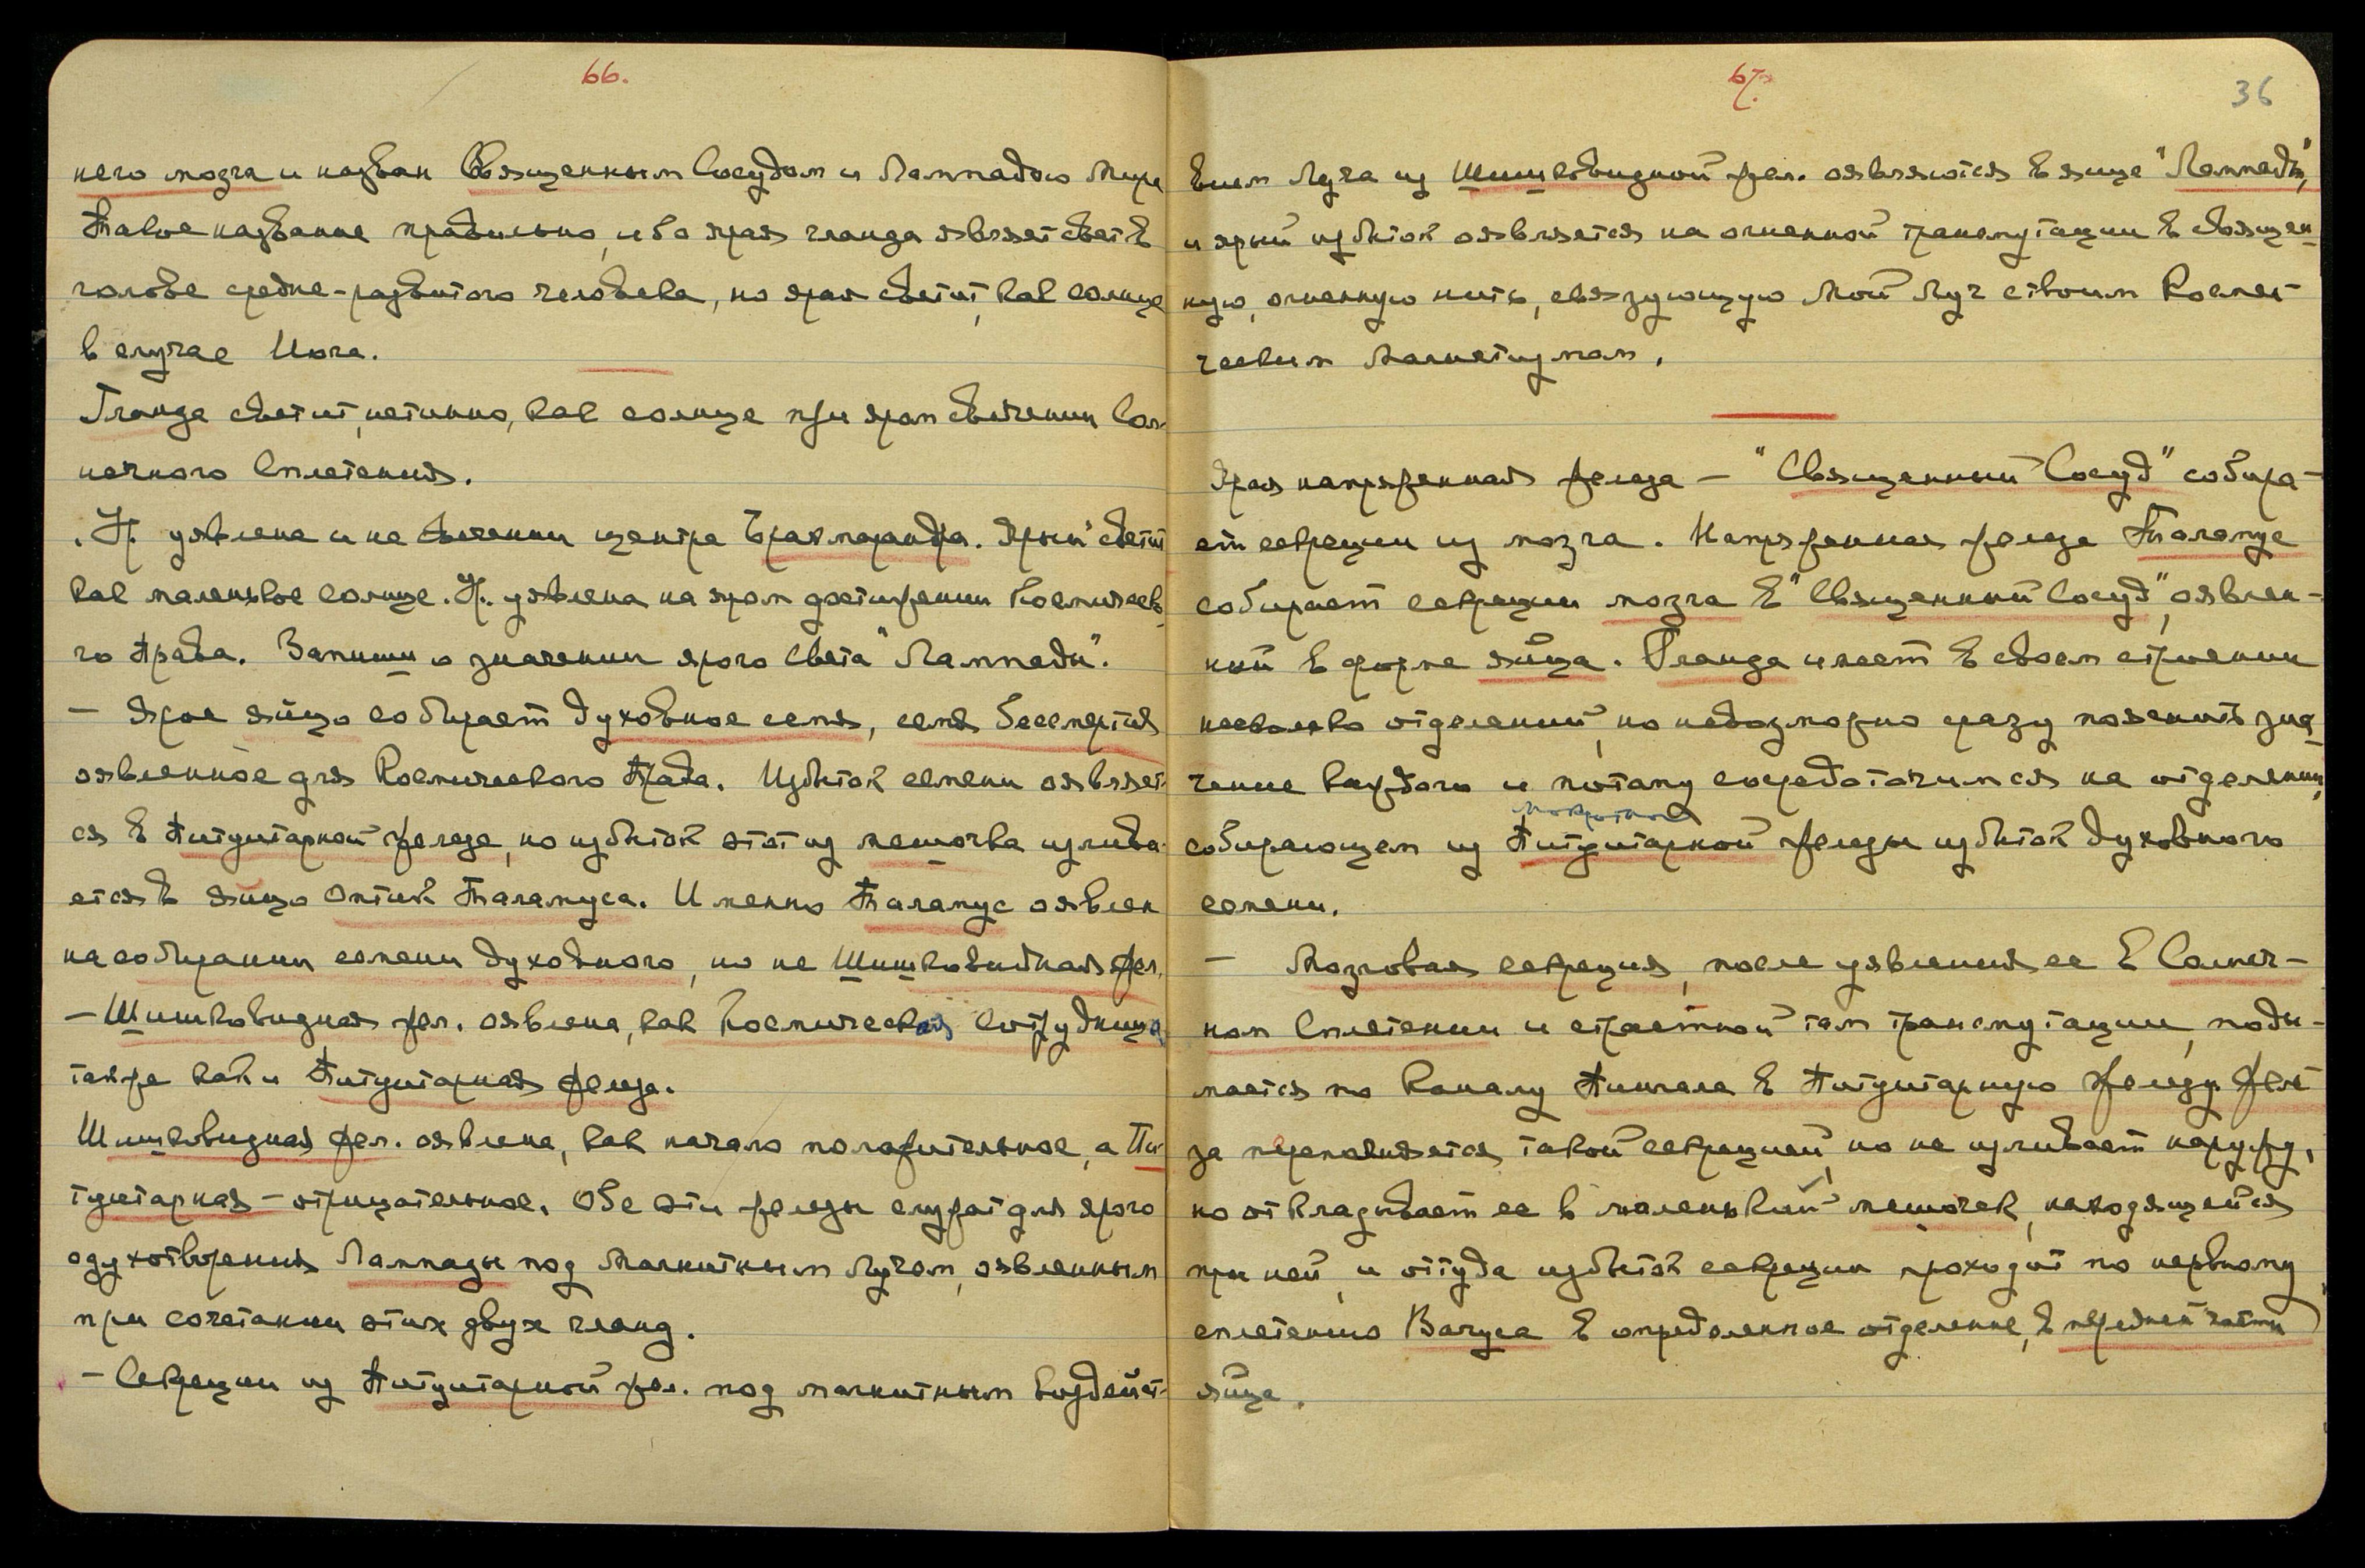 66.
него мозга и назван Священным Сосудом и Лампадою Мира
Такое название правильно, ибо ярая гланда являет свет в
голове средне-развитого человека, но ярая светит, как солнце
в случае Иога.
Гланда светит, истинно, как солнце при яром свечении Сол-
нечного Сплетения.
Ур. уявлена и на свечении центра Брахмарандра. Ярый светит
как маленькое солнце. Ур. уявлена на яром достижении Космическо-
го Права. Запиши о значении ярого Света "Лампады".
— Ярое яйцо собирает духовное семя, семя бессмертия
оявленное для Космического Права. Избыток семени оявляет-
ся в Питуитарной железе, но избыток этот из мешочка излива-
ется в яйцо Оптик Таламуса. Именно Таламус оявлен
на собирании семени духовного, но не Шишковидная жел.
— Шишковидная жел. оявлена, как Космическая Сотрудница,
также как и Питуитарная железа.
Шишковидная жел. оявлена, как начало положительное, а Пи-
туитарная — отрицательное. Обе эти железы служат для ярого
одухотворения Лампады под Магнитным Лучом, оявленным
при сочетании этих двух гланд.
— Секреции из Питуитарной жел. под магнитным воздейст-
67.
36
вием Луча из Шишковидной жел. оявляются в яйце "Лампады",
и ярый избыток оявляется на огненной трансмутации в священ-
ную, огненную нить, связующую Мой Луч с твоим Косми-
ческим Магнетизмом.
Ярая напряженная железа — "Священный Сосуд" собира-
ет секреции из мозга. Напряженная железа Таламус
собирает секреции мозга в "Священный Сосуд", оявлен-
ный в форме яйца. Гланда имеет в своем строении
несколько отделений, но невозможно сразу пояснить зна-
чение каждого и потому сосредоточимся на отделении,
собирающем из Питуитарной железы избыток духовного
семени.
— Мозговая секреция, после уявления ее в Солнеч-
ном Сплетении и страстной там трансмутации, поды-
мается по каналу Пингала в Питуитарную железу. Желе-
за переполняется такой секрецией, но не изливает наружу,
но откладывает ее в маленький мешочек, находящейся
при ней, и оттуда избыток секреции проходит по нервному
сплетению Вагуса в определенное отделение, в передней части
яйца.